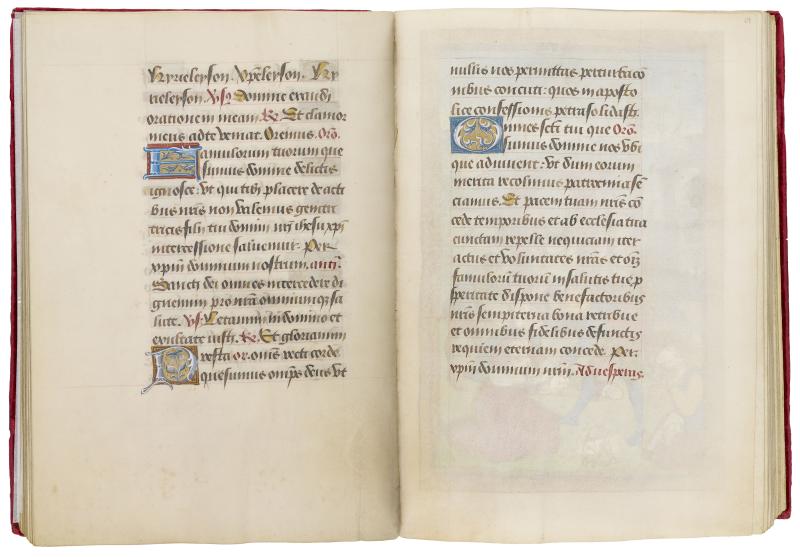 Kyrieleyson. Xpeleyson. Ky
rieleyson. Vs̃. Domine exaudi
orationem meam. R̃. Et clamor
meus ad te veniat. Oremus. Orõ.
Famulorum tuorum que
sumus domine delictis
ignosce. Vt qui tibi placere de acti
bus nr̃is non valemus genitri
tricis filii tui domini nr̃i ihesu xp̃i
intercessione saluemur. Per
xp̃m dominum nostrum. antiᷓ.
Sancti dei omnes intercedere di
gnemini pro nr̃a omniumqꝫ sa
lute. Vs̃. Letamini in domino et
exultate iusti. R̃. Et gloriamini
Presta or. omẽs recti corde
quesumus omp̃s deus vt
nullis nos permittas perturbacõ
nibus concuti: quos in aposto
lice confessionis petra solidasti.
Omnes sc̃ti tui que Orõ.
sumus domine nos vbi
que adiuuent: vt dum eorum
merita recolimus patrocinia sẽ
ciamus. Et pacem tuam nr̃is cõ
cede temporibus et ab ecclesia tua
cunctam repelle nequiciam iter
actus et voluntates nr̃as et oĩꝫ
famulorũ tuorũ in salutis tue ꝓ
speritate dispone benefactoribus
nr̃is sempiterna bona retribue
et omnibus fidelibus defunctis
requiem eternam concede. Per.
xp̃m dominum nr̃m. Ad vesperas.